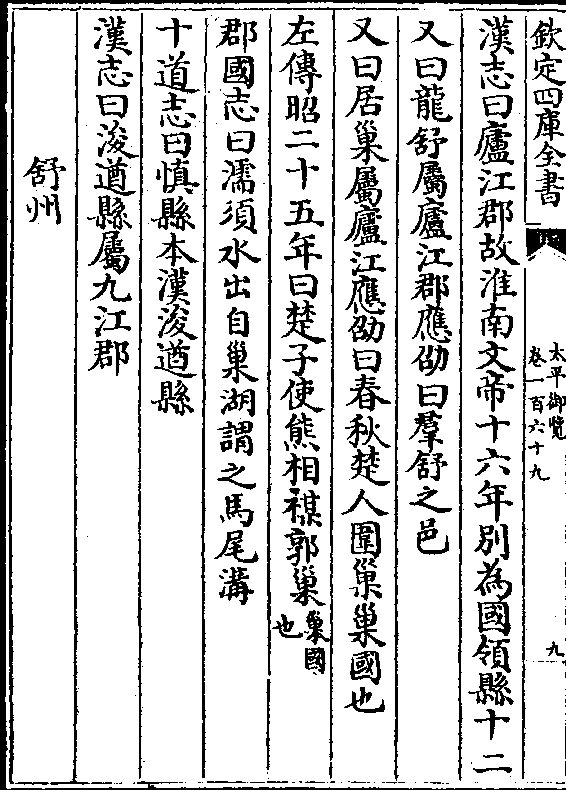 欽定四庫全書
太平御覽
卷一百六十九
九
漢志曰廬江郡故淮南文帝十六年別為國領縣十二
又曰龍舒屬廬江郡應劭曰羣舒之邑
又曰居巢屬廬江應劭曰春秋楚人圍巢巢國也
左傳昭二十五年曰楚子使熊相禖郭巢巢國也
郡國志曰濡須水出自巢湖謂之馬尾溝
十道志曰慎縣本漢浚遒縣
漢志曰浚遒縣屬九江郡
舒州